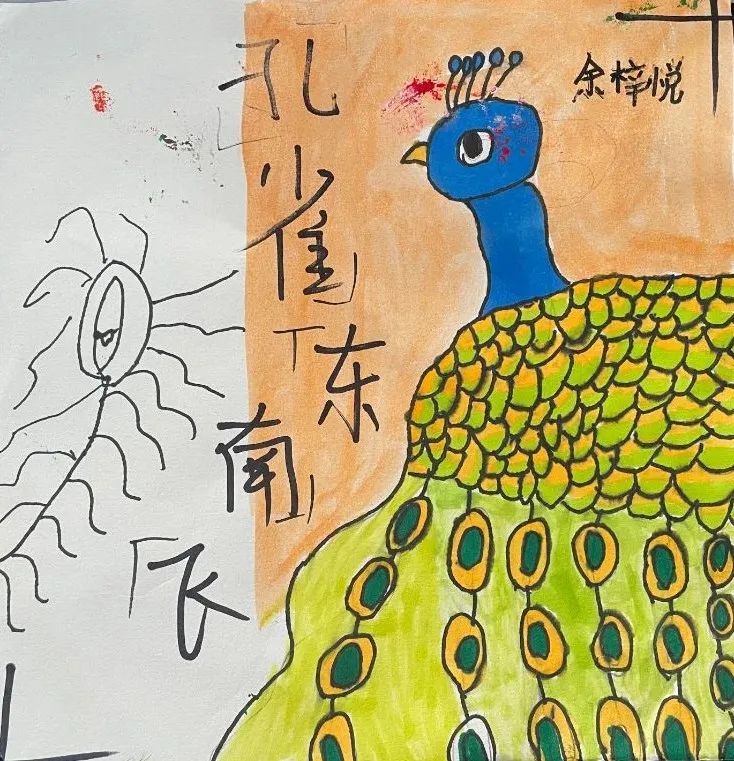 孔
雀
东
南
飞
余梓悦